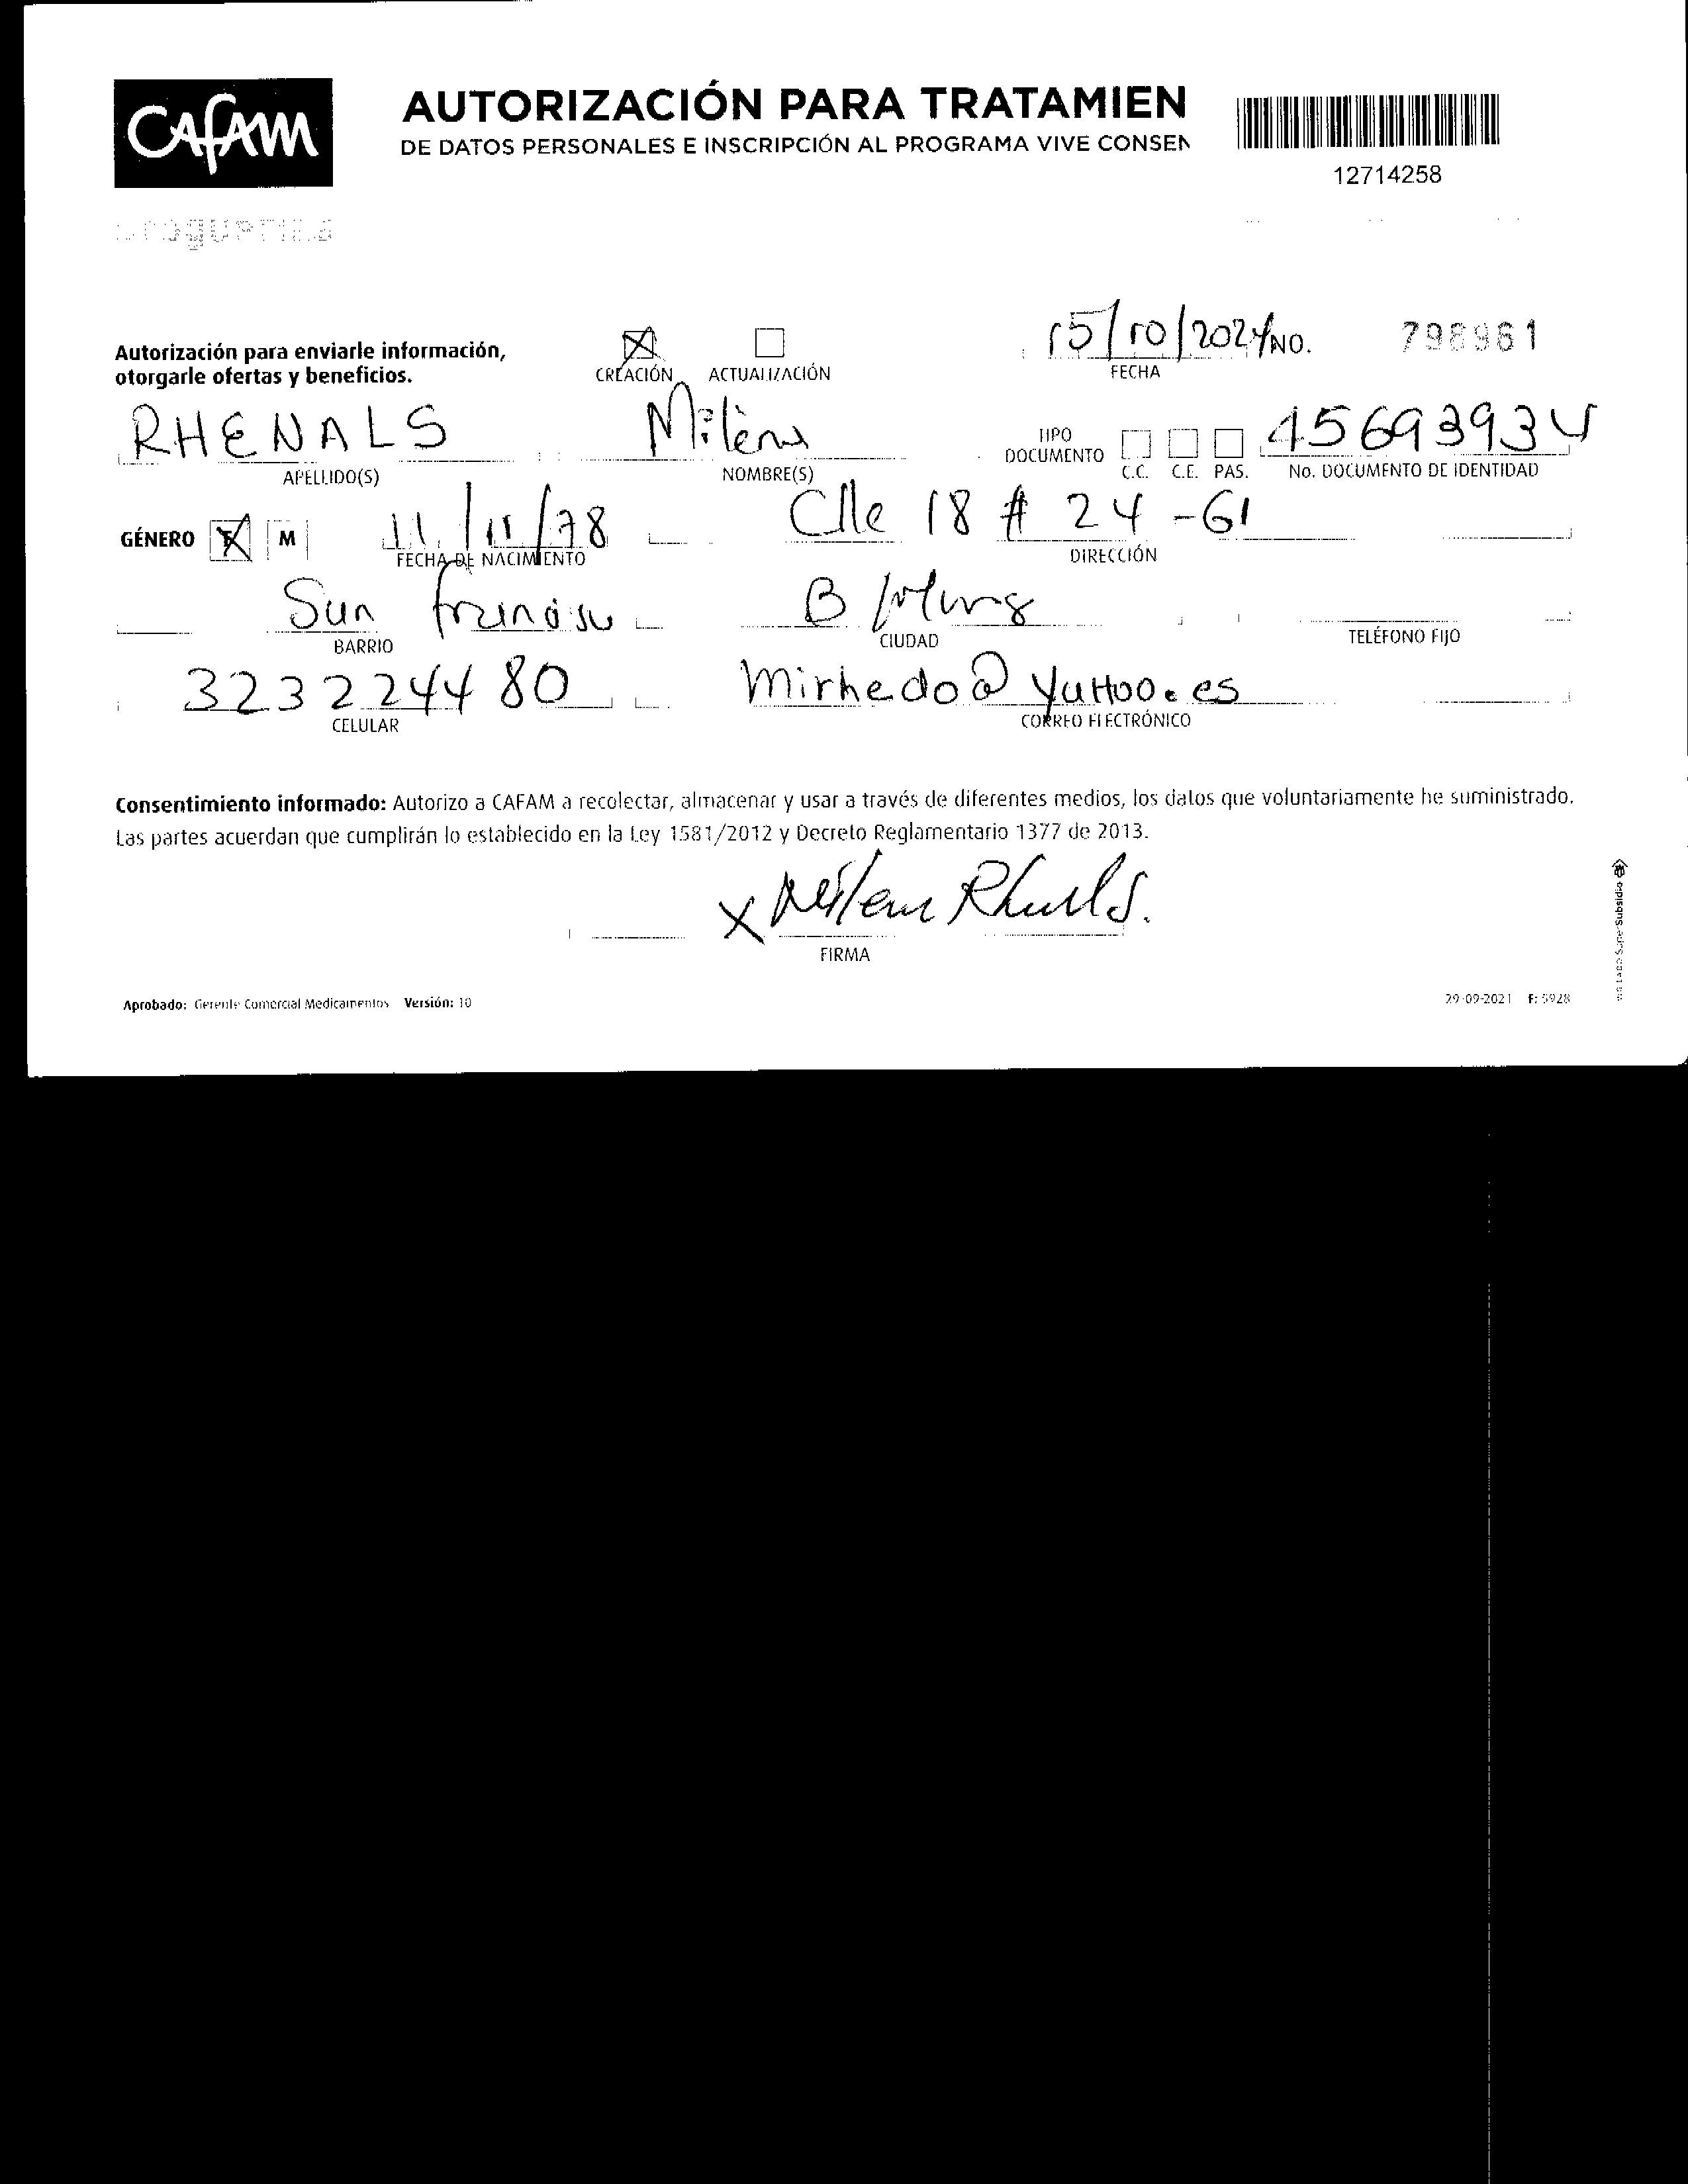 CAFAM
AUTORIZACIÓN PARA TRATAMIEN
DE DATOS PERSONALES E INSCRIPCIÓN AL PROGRAMA VIVE CONSEN
12714258
Autorización para enviarle información,
otorgarle ofertas y beneficios.
CREACIÓN ACTUALIZACIÓN
15/10/2024 NO. 798961
FECHA
RHENALS Milena
TIPO DOCUMENTO C.C. C.E. PAS. 45693934
APELLIDO(S) NOMBRE(S) No. DOCUMENTO DE IDENTIDAD
GÉNERO F M 11/11/78 Clle 18 # 24-61
FECHA DE NACIMIENTO DIRECCIÓN
San
BARRIO CIUDAD TELÉFONO FIJO
3232224480 mirhedo@yaHoo.es
CELULAR CORREO ELECTRÓNICO
Consentimiento informado: Autorizo a CAFAM a recolectar, almacenar y usar a través de diferentes medios, los datos que voluntariamente he suministrado.
Las partes acuerdan que cumplirán lo establecido en la Ley 1581/2012 y Decreto Reglamentario 1377 de 2013.
x Milena Rhenals.
FIRMA
Aprobado: Gerente Comercial Medicamentos Versión: 10
29-09-2021 F: 5928
SuperSubsidio